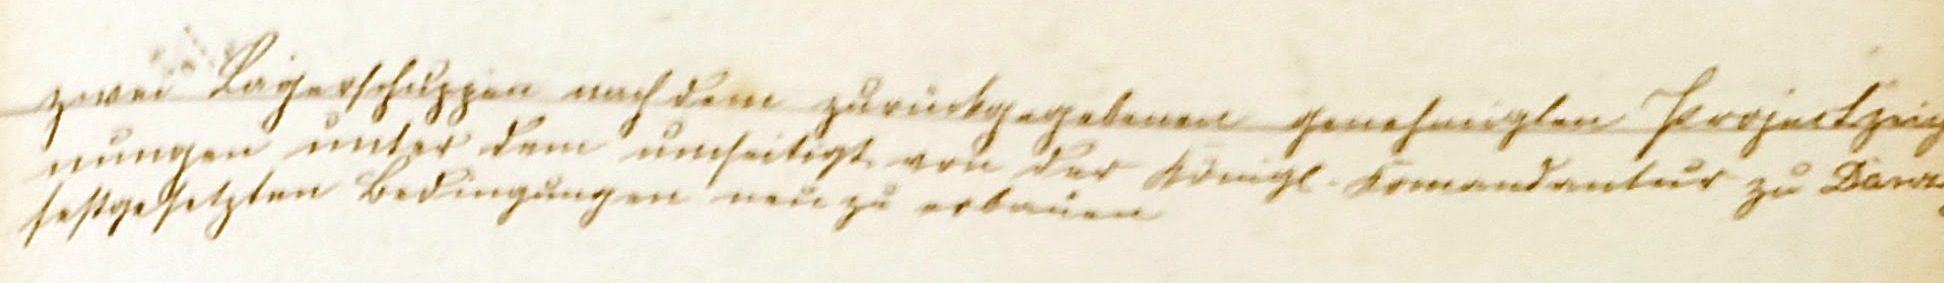 zwei Lagerschuppen nach dem zurückgegebenen genehmigten Projectzeich
nungen unter dem umseitigt von der Königl. Komandantur zu Danz
festgesetzten Bedingungen neu zu erbauen